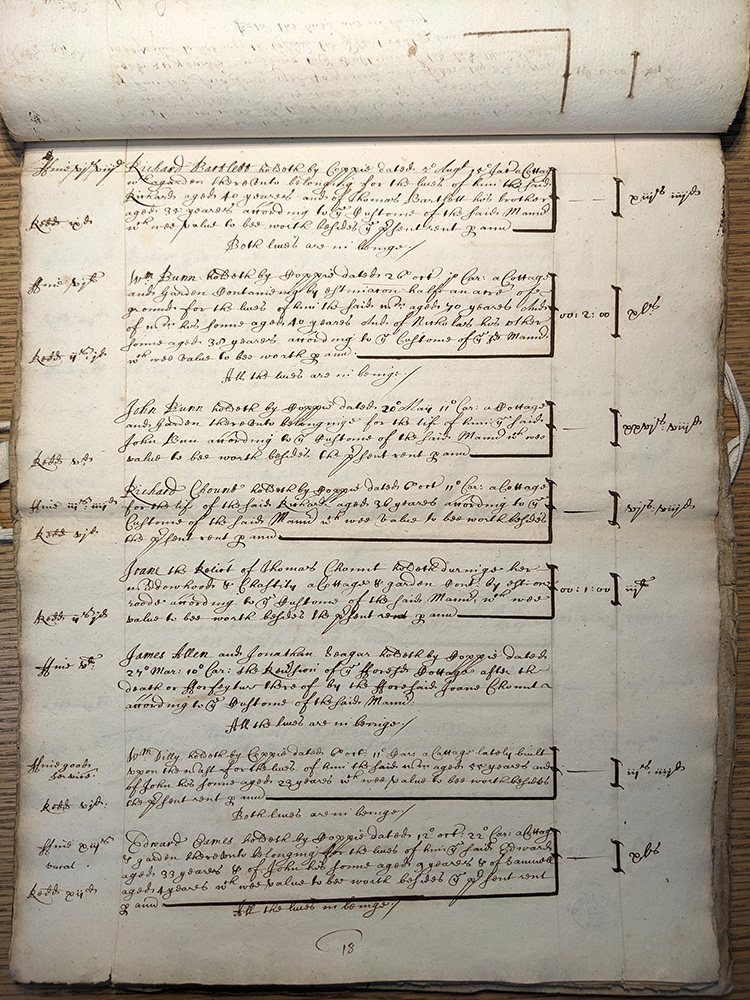 Richard Bartlett holdeth by Coppie dated 5o Augt 15o Jac: a Cottage
wth a garden thereunto belonging for the lives of him the said
Richard aged 40 yeares and of Thomas Bartlett his brother
aged 35 yeares according to ye Custome of the said Mannr
wch wee value to bee worth besides ye p'sent rent p ann
Rent
Both lives are in beinge:/
ffine vjs
Wm Bunn holdeth by Coppie dated 26 oct Car: a Cottage
and Garden Containeing by estimacon half an acre of
ground for the lives of him the said Wm aged 70 yeares And
of Wm his sonne aged 40 yeares And of Nicholas his other
sonne aged 38 yeares according to ye Custome of ye sd Mannr
wch wee value to bee worth p ann
Rent
00: 2: 00
xls
All the lives are in beinge:/
John Bunn holdeth by Coppie dated 20o May 11o Car: a Cottage
and Garden thereunto belonginge for the life of him ye said
John Bunn according to ye Custome of the said Mannr wch wee
value to bee worth besides the p'sent rent p ann
Rent vd
xxvjs: viijd
Richard Chount holdeth by Coppie dated 6o oct 11o Car: a Cottage
for the life of the said Richard aged 36 yeares according to ye
Custome of the said Mannr wch wee value to bee worth besides
the p'sent rent p ann
ffine iijs: iiijd
Rent vjd
vjs: viijd
Joane the Relict of Thomas Chount holdeth durninge her
widdowhood & Chastity a Cottage & garden Cont: by est: one
roode according to ye Custome of the said Mannr wch wee
value to bee worth besides the p'sent rent p ann
Rent
00: 1: 00
James Allen and Jonathan Seagar holdeth by Coppie dated
27o Mar: 10o Car: the Revʼsion of ye fforesd Cottage after the
death or fforfeyture there of by the fforesaid Joane Chount
according to ye Custome of the said Mannr
ffine
All the lives are in beinge:/
Wm Dilly holdeth by Coppie dated 6o oct: 11o Car: a Cottage lately built
upon the wast for the lives of him the said Wm aged 55 yeares and
of John his sonne aged 23 yeares wch wee value to bee worth besides
the p'sent rent p ann
ffine good
service
Rent vjd
iijs: iiijd
Both lives are in beinge:/
Edward James holdeth by Coppie dated 12o oct: 22o Car: a Cottage
& garden thereunto belonging for the lives of him ye said Edward
aged 33 yeares & of John his sonne aged 9 yeares & of Samuell
aged 4 yeares wch wee value to bee worth besides ye p'sent rent
p ann
ffine xijs
Rent xijd
xls
All the lives in beinge:/
18